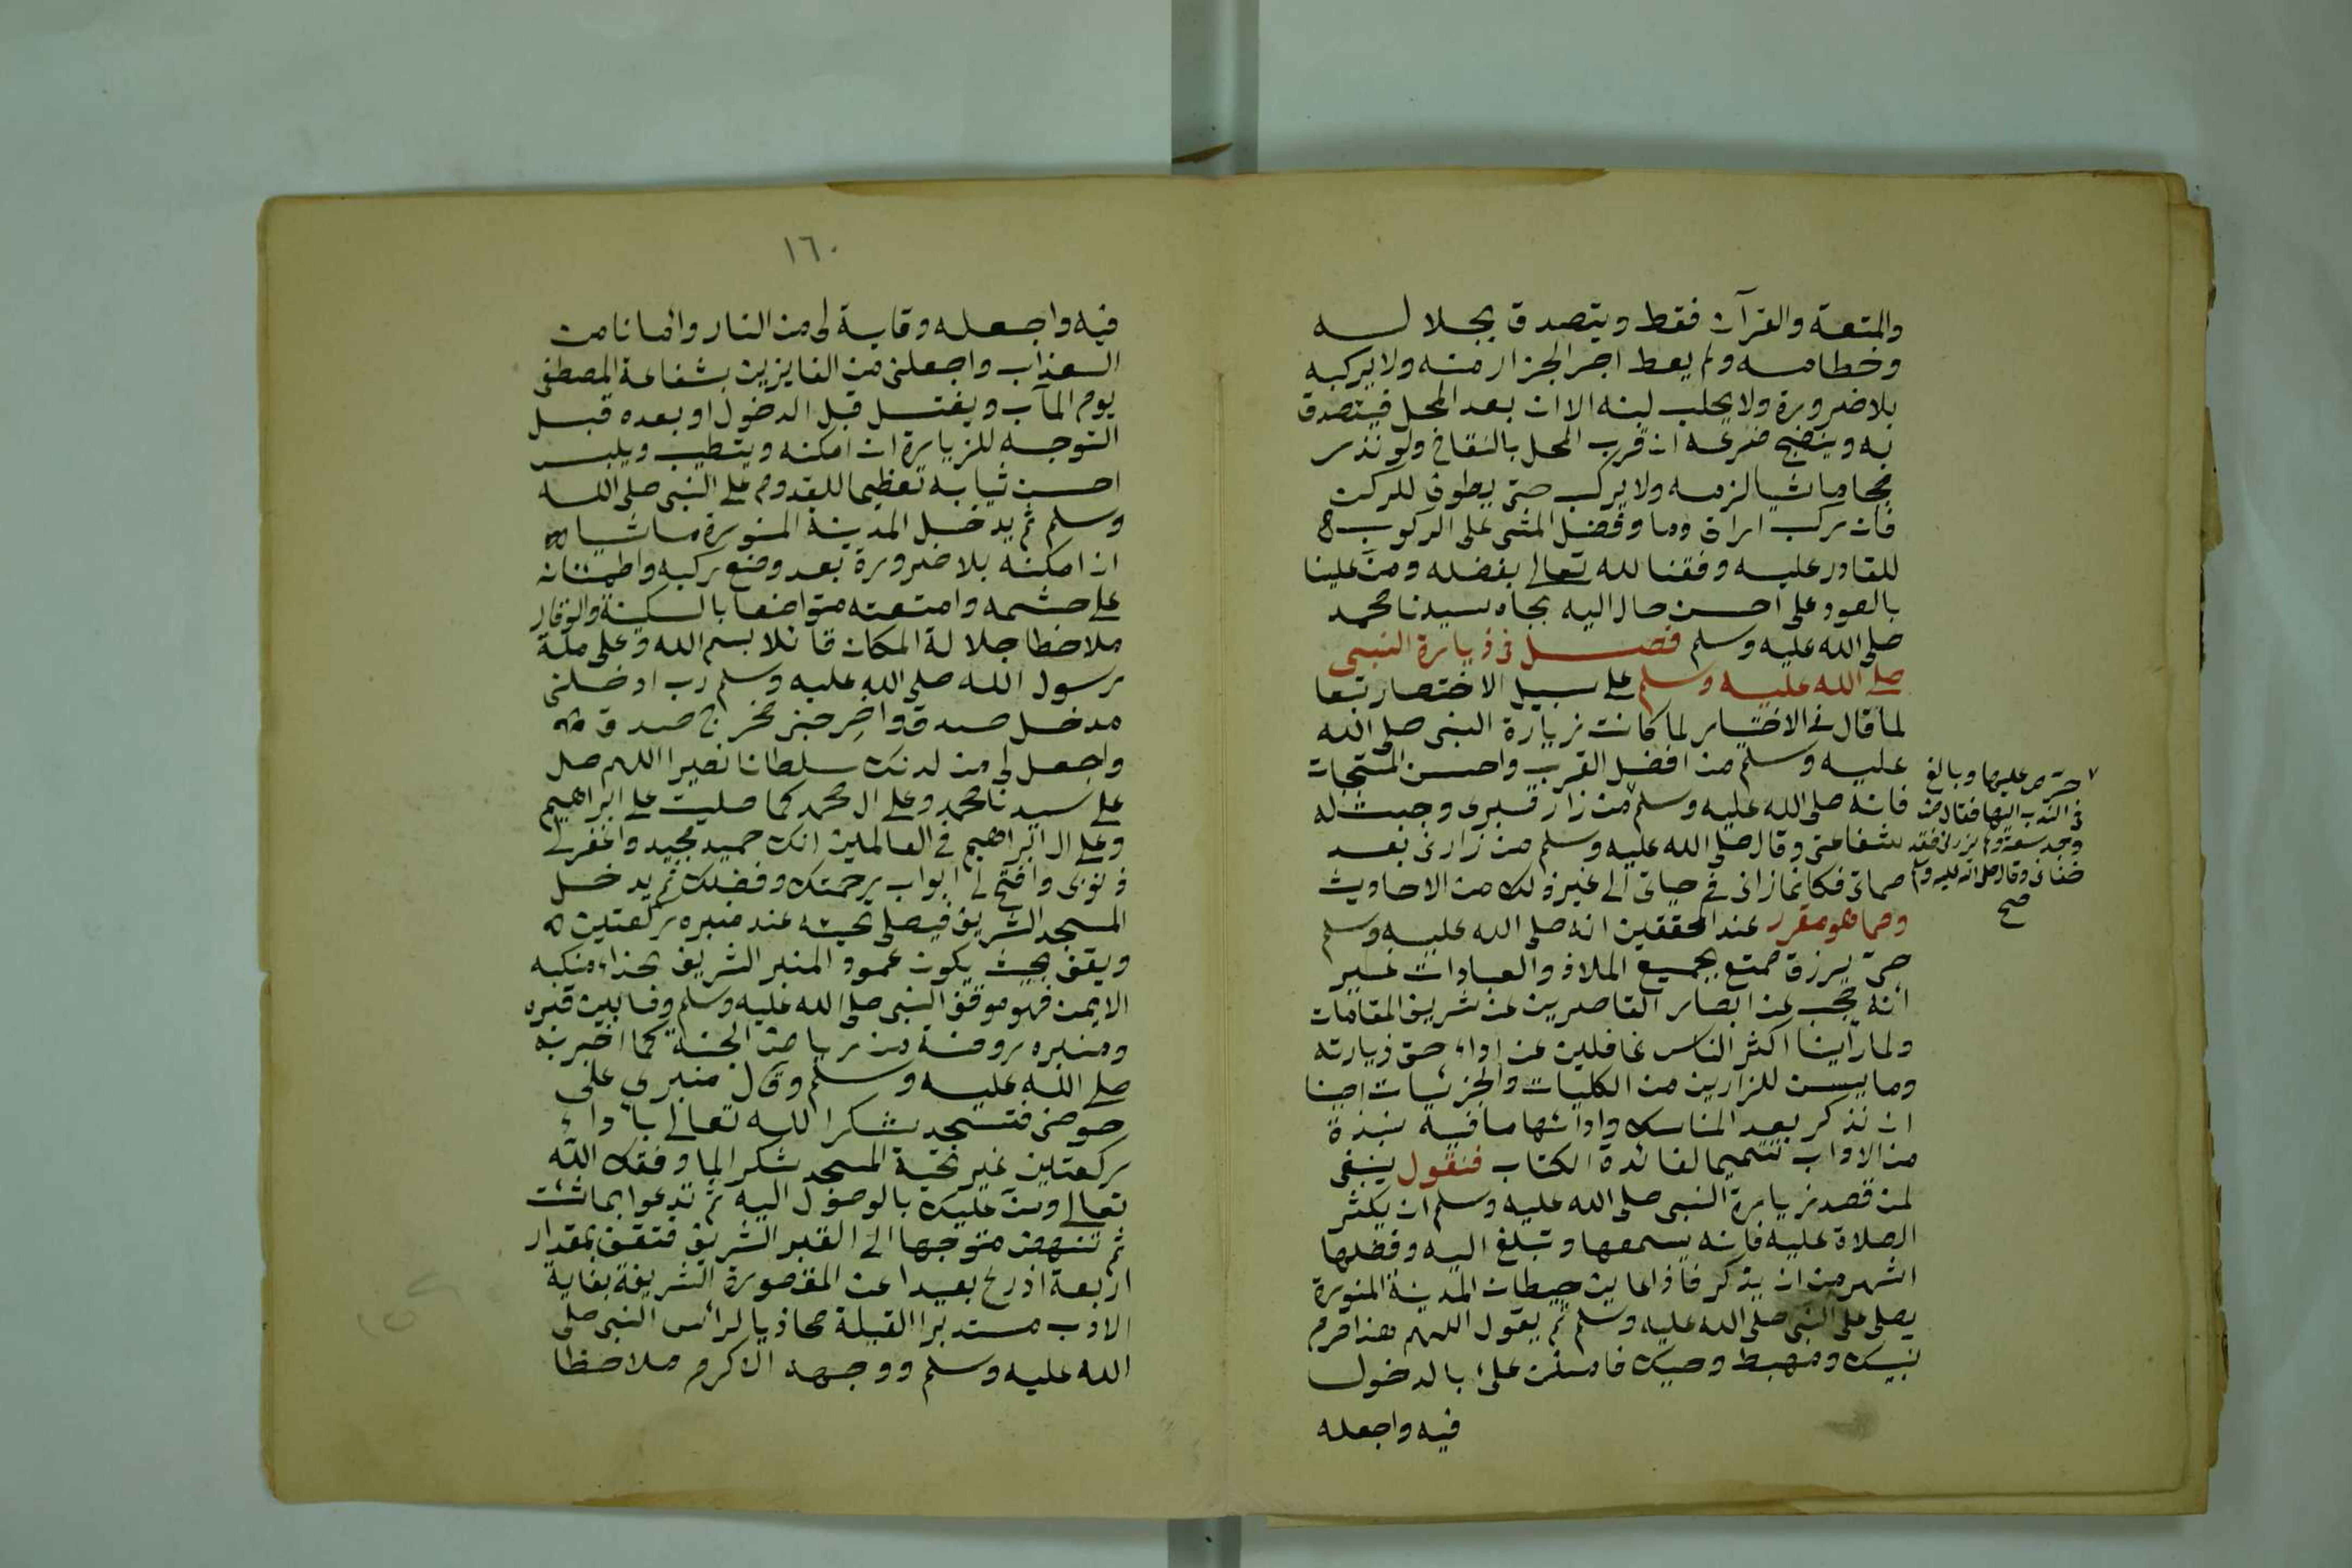 والمتعة والقرآن فقط ويتصدق بجلاله
وخطامه ولم يعط اجر الجزار منه ولا يركبه
بلا ضرورة ولا يحلب لبنه الا ان بعد المحل فيتصدق
به وينضح ضرعه ان قرب المحل بالنقاخ ولو نذر
حجا ماشيا لزمه ولا يركب حتى يطوف للركن
فان ركب اراق دما وفضل المشى على الركوب
للقادر عليه وفقنا لله تعالى بفضله ومنّ علينا
بالعود على احسن حال اليه بجاه سيدنا محمد
صلى الله عليه وسلم فصل فى زيارة النبى
صلى الله عليه وسلم على سبيل الاختصار تبعا
لما قال فى الاختيار لما كانت زيارة النبى صلى الله
عليه وسلم من افضل القرب واحسن المستحبات
فانه صلى الله عليه وسلم من زار قبرى وجبت له
شفاعتى وقال صلى الله عليه وسلم من زارنى بعد
مماتى فكانما زارنى فى حياتى الى غير ذلك من الاحاديث
ومما هو مقرر عند المحققين انه صلى الله عليه وسلم
حىّ يرزق ممتع بجميع الملاذ والعبادات غير
انه حجب عن ابصار القاصرين عن شريف المقامات
ولما رأينا اكثر الناس غافلين عن اداء حق زيارته
وما يسن للزايرين من الكليات والجزئيات احبنا
ان نذكر بعد المناسك وادائها ما فيه نبذة
من الاداب تتميما لفائدة الكتاب فنقول ينبغى
لمن قصد زيارة النبى صلى الله عليه وسلم ان يكثر
الصلاة عليه فانه يسمعها وتبلغ اليه وفضلها
اشهر من ان يذكر فاذا عاين حيطان المدينة المنورة
يصلى على النبى صلى الله عليه وسلم ثم يقول اللهم هذا حرم
نبيك ومهبط وحيك فامنن علىّ بالدخول
فيه واجعله
حرّص عليها وبالغ
فى الندب اليها فقال من
وجد سعة ولم يزرنى فقد
جفانى وقال صلى الله عليه وسلم
صح
١٦٠
فيه واجعله وقاية لى من النار وامانا من
العذاب واجعلنى من الفايزين بشفاعة المصطفى
يوم المآب ويغتسل قبل الدخول او بعده قبل
التوجه للزيارة ان امكنه ويتطيب ويلبس
احسن ثيابه تعظيما للقدوم على النبى صلى الله
وسلم ثم يدخل المدينة المنورة ماشيا
ان امكنه بلا ضرورة بعد وضع ركبه واطمئنانه
على حشمه وامتعته متواضعا بالسكينة والوقار
ملاحظا جلالة المكان قائلا بسم الله وعلى ملة
رسول الله صلى الله عليه وسلم رب ادخلنى
مدخل صدق واخرجنى مخرج صدق
واجعل لى من لدنك سلطانا نصيرا اللهم صل
على سيدنا محمد وعلى ال محمد كما صليت على ابراهيم
وعلى ال ابراهيم فى العالمين انك حميد مجيد واغفر لى
ذنوبى وافتح لى ابواب رحمتك وفضلك ثم يدخل
المسجد الشريف فيصلى تحيته عند منبره ركعتين
ويقف بحيث يكون عمود المنبر الشريف بحذاء منكبه
الايمن فهو موقف النبى صلى الله عليه وسلم وما بين قبره
ومنبره روضة من رياض الجنة كما اخبر به
صلى الله عليه وسلم وقال منبرى على
حوضى فتسجد شكرا لله تعالى باداء
ركعتين غير تحية المسجد شكرا لما وفقك الله
تعالى ومنّ عليك بالوصول اليه ثم تدعوا بما شئت
ثم تنهض متوجها الى القبر الشريف فتقف بمقدار
اربعة اذرع بعيدا عن المقصورة الشريفة بغاية
الادب مستدبرا القبلة محاذيا لرأس النبى صلى
الله عليه وسلم ووجهه الاكرم ملاحظا